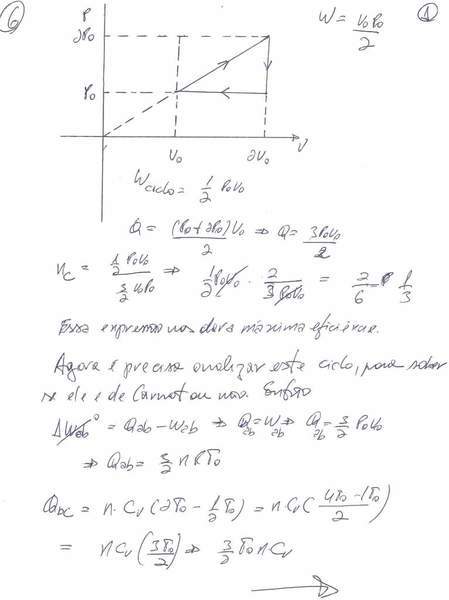 6
P
2P₀
P₀
V₀ 2V₀ V
W = V₀P₀/2
1
W ciclo = 1/2 P₀V₀
Q = (P₀+2P₀)V₀/2 ⇒ Q = 3P₀V₀/2
η_c = (1/2 P₀V₀)/(3/2 V₀P₀) ⇒ 1/2 P₀V₀ · 2/(3P₀V₀) = 2/6 = 1/3
Essa expressão nos dara máxima eficiência.
Agora é preciso analizar este ciclo, para saber
se ele é de Carnot ou não. Então
ΔUab⁰ = Qab - Wab ⇒ Qab = Wab ⇒ Qab = 3/2 P₀V₀
⇒ Qab = 3/2 nRT₀
Qbc = n·Cv(2T₀ - 1/2 T₀) = nCv((4T₀ - 1T₀)/2)
= nCv(3T₀/2) ⇒ 3/2 T₀nCv